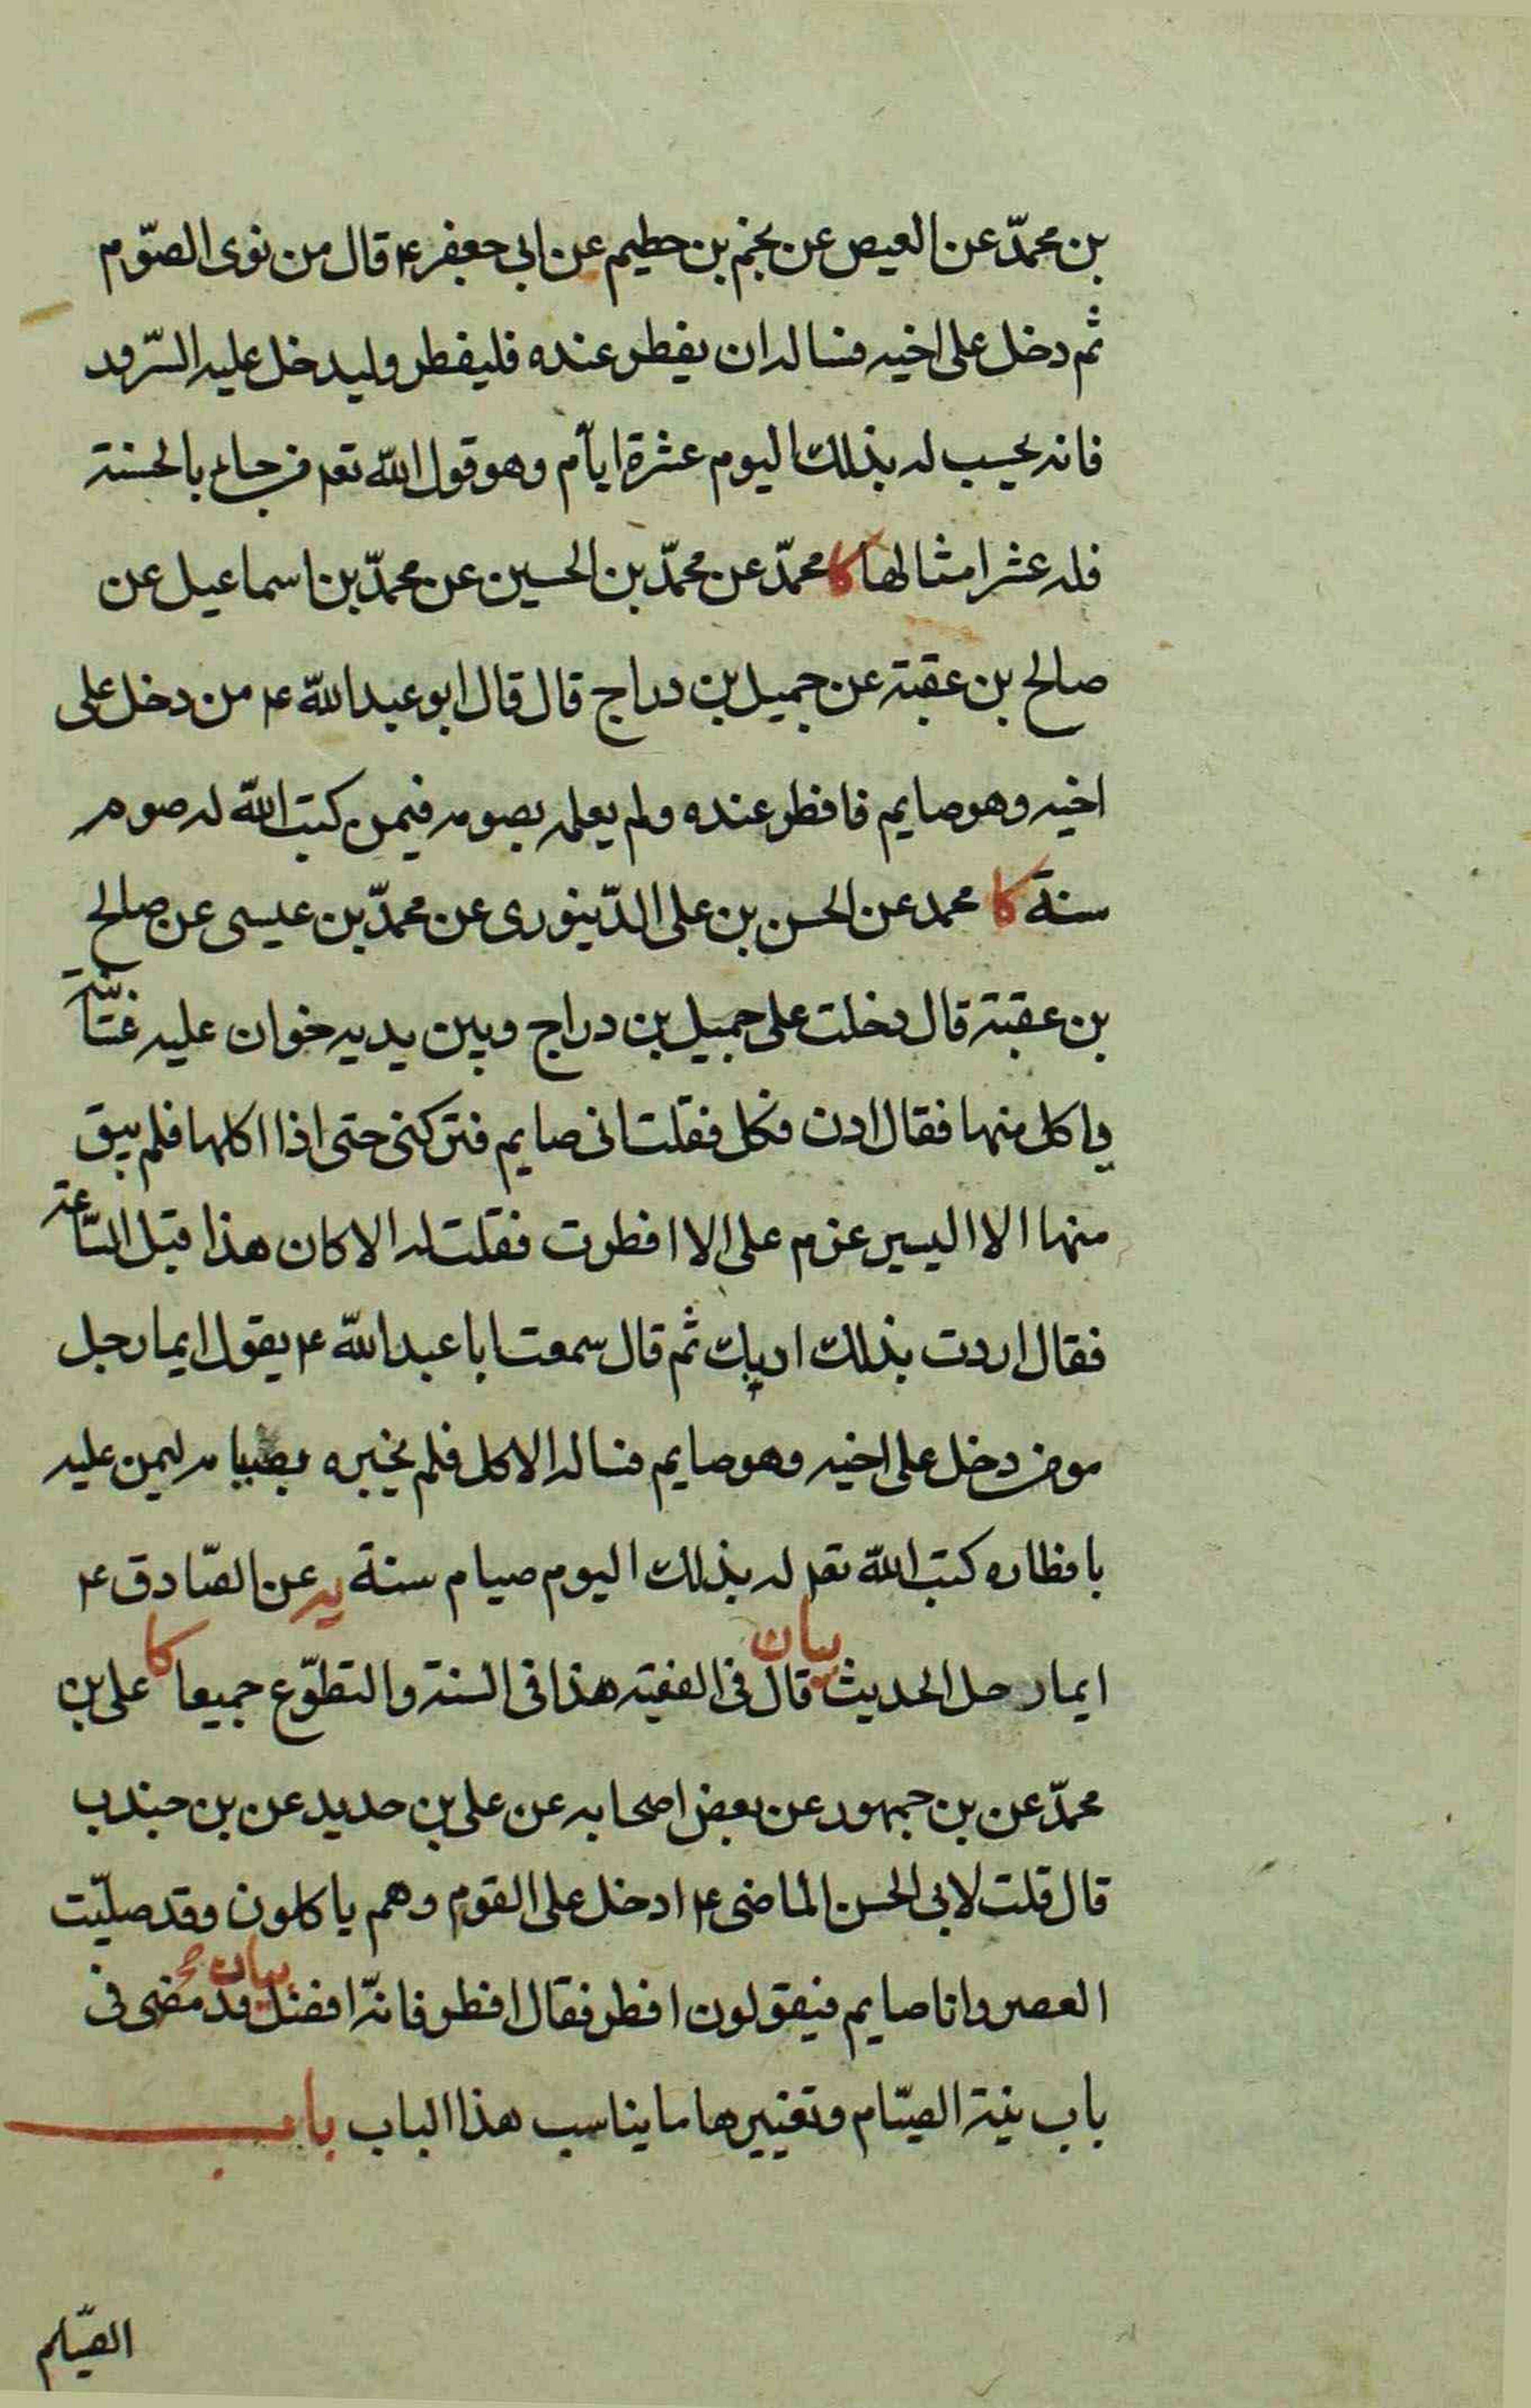 بن محمّد عن العيص عن نجم بن حطيم عن ابي جعفر ع قال من نوى الصّوم
ثم دخل على اخيه فساله ان يفطر عنده فليفطر وليدخل عليه السّرور
فانه يحسب له بذلك اليوم عشرة ايّام وهو قول اللّه تعه من جاء بالحسنة
فله عشر امثالها كا محمّد عن محمّد بن الحسين عن محمّد بن اسماعيل عن
صالح بن عقبة عن جميل بن دراج قال قال ابو عبد اللّه ع من دخل على
اخيه وهو صايم فافطر عنده ولم يعلمه بصومه فيمن كتب اللّه له صوم
سنة كا محمد عن الحسن بن على الدّينورى عن محمّد بن عيسى عن صالح
بن عقبة قال دخلت على جميل بن دراج وبين يديه خوان عليه غسّانية
ياكل منها فقال ادن فكل فقلت انى صايم فتركنى حتى اذا اكلها فلم يبق
منها الا اليسير عزم على الا افطرت فقلت له الا كان هذا قبل السّاعة
فقال اردت بذلك ادبك ثم قال سمعت ابا عبد اللّه ع يقول ايما رجل
مومن دخل على اخيه وهو صايم فساله الاكل فلم يخبره بصيامه ليمن عليه
بافطاره كتب اللّه تعه له بذلك اليوم صيام سنة يه عن الصّادق ع
ايما رجل الحديث بيان قال فى الفقيه هذا فى السنة والتطوّع جميعا كا على بن
محمّد عن بن جمهور عن بعض اصحابه عن على بن حديد عن بن جندب
قال قلت لابى الحسن الماضى ع ادخل على القوم وهم ياكلون وقد صلّيت
العصر وانا صايم فيقولون افطر فقال افطر فانّه افضل بيان قد مضى فى
باب نية الصّيام وتغييرها ما يناسب هذا الباب باب
الصّيام